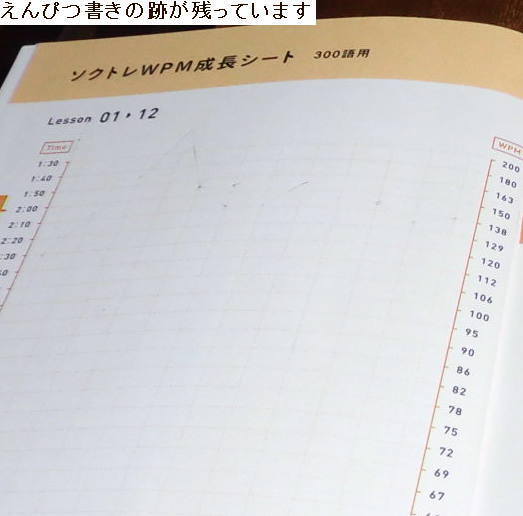 えんぴつ書きの跡が残っています
ソクトレWPM成長シート 300語用
Lesson 01・12
Time
1:30
1:40
1:50
2:00
2:10
2:20
:30
WPM
200
180
163
150
138
129
120
112
106
100
95
90
86
82
78
75
72
69
67